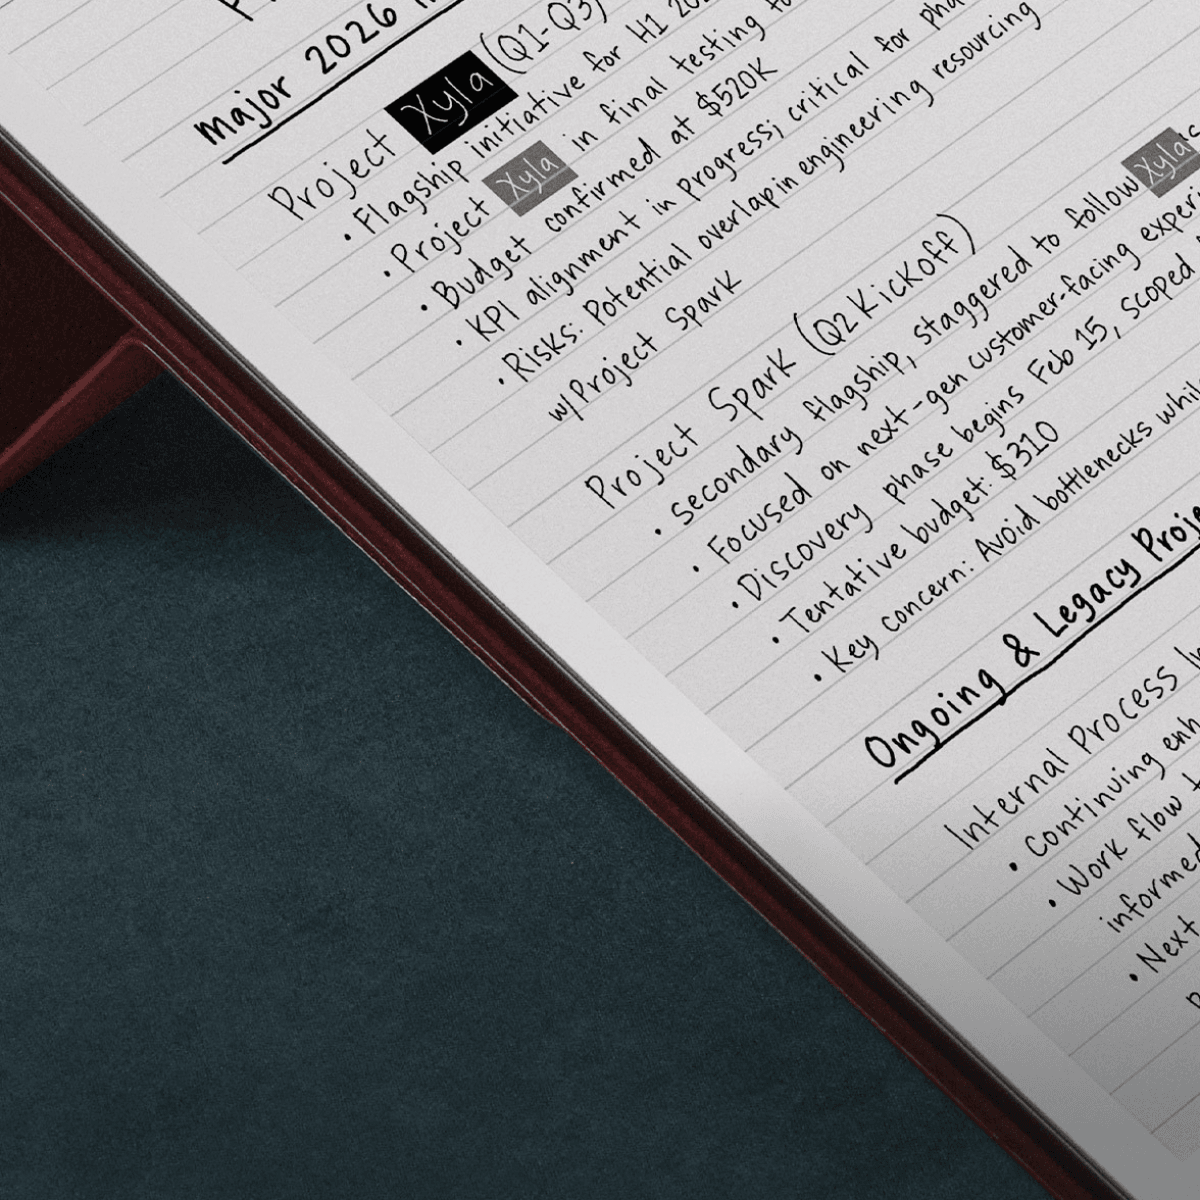 Major 2026
Project Xyla (Q1-Q3)
• Flagship initiative for H1
• Project Xyla in final testing
• Budget confirmed at $520K
• KPI alignment in progress; critical for
• Risks: Potential overlap in engineering resourcing
w/Project Spark
Project Spark (Q2 Kickoff)
• Secondary flagship, staggered to follow Xyla
• Focused on next-gen customer-facing
• Discovery phase begins Feb 15, scoped
• Tentative budget: $310
• Key concern: Avoid bottlenecks
Ongoing & Legacy
Internal Process
• Continuing
• Work flow
informed
• Next